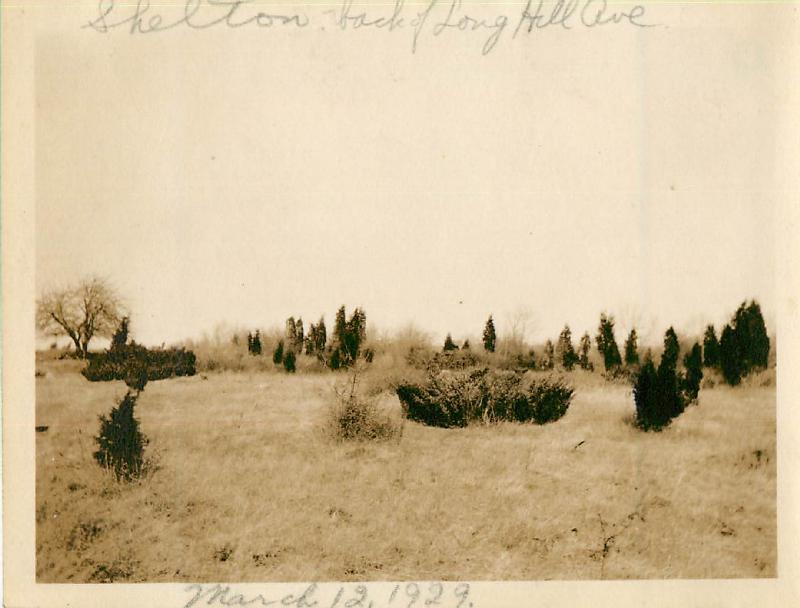 Shelton. back of Long Hill Ave.
March 12, 1929.